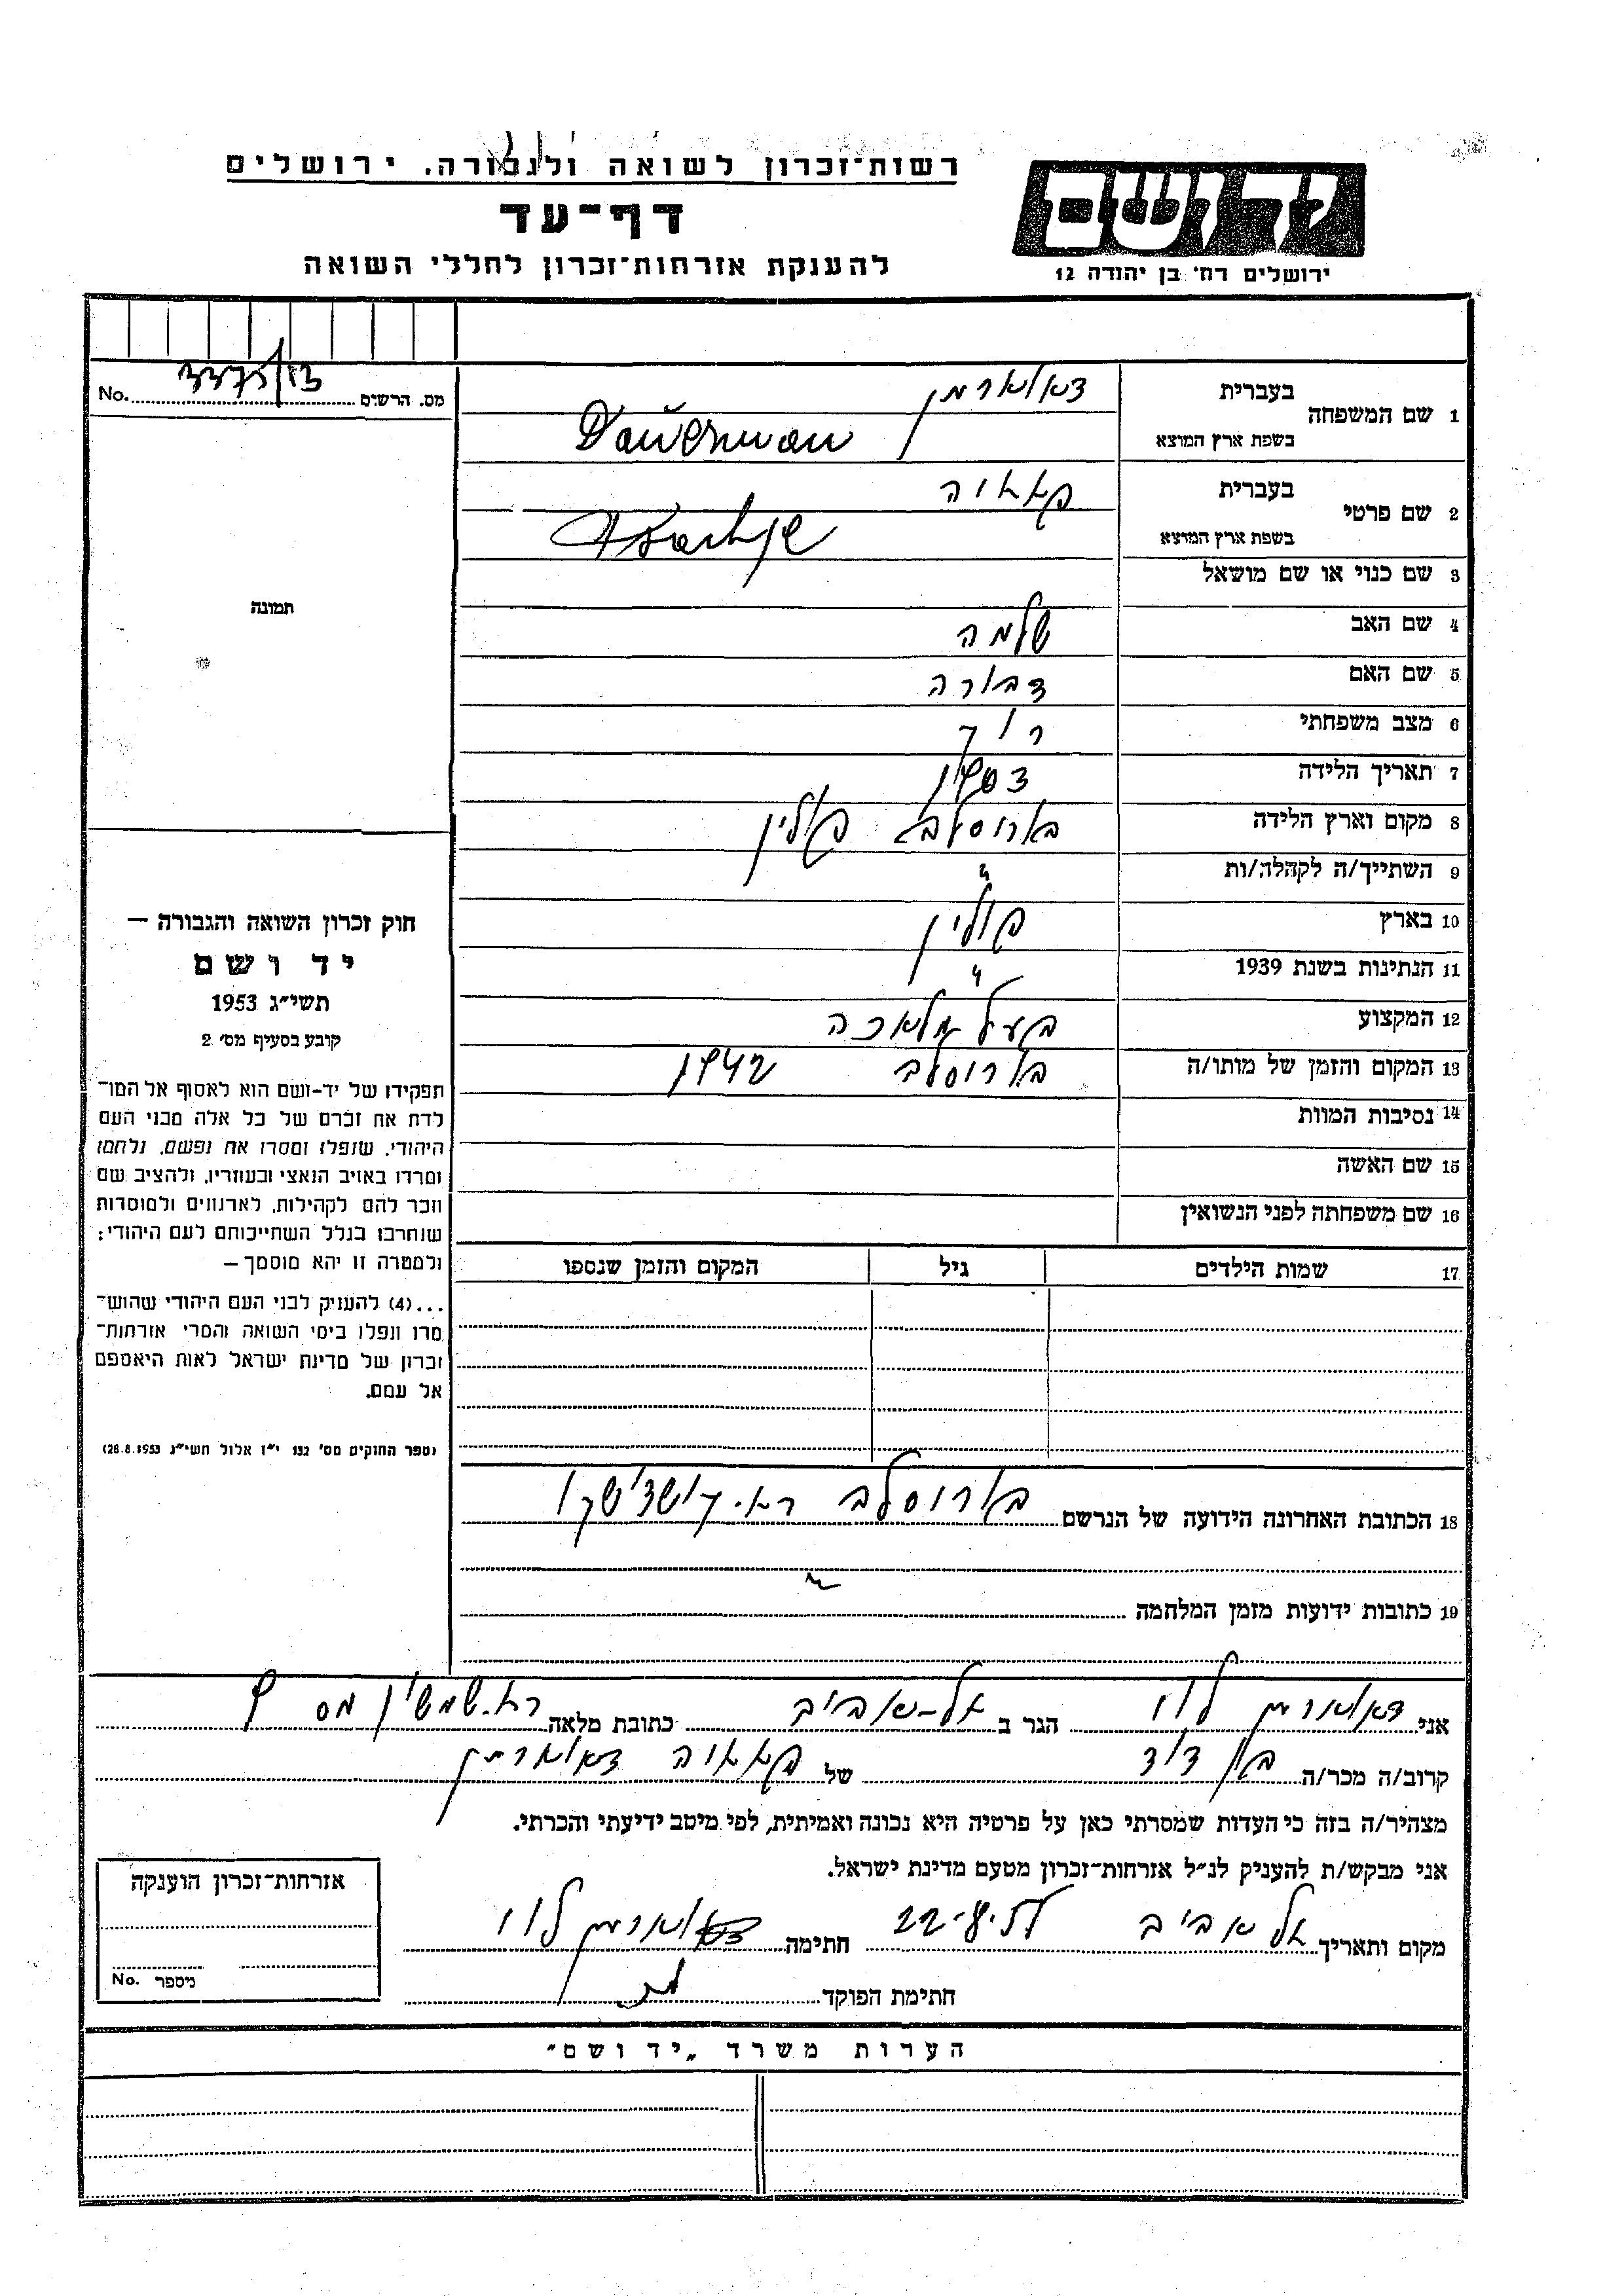 רשות־זכרון לשואה ולגבורה. ירושלים
דף־עד
להענקת אזרחות־זכרון לחללי השואה
יד ושם
ירושלים רח' בן יהודה 12
מס. הרשום No.
1 שם המשפחה בעברית דאוארמן
בשפת ארץ המוצא
2 שם פרטי בעברית
בשפת ארץ המוצא
3 שם כנוי או שם מושאל
4 שם האב שלמה
5 שם האם דבורה
6 מצב משפחתי רוק
7 תאריך הלידה
8 מקום וארץ הלידה פולין
9 השתייך/ה לקהלה/ות "
10 בארץ פולין
11 הנתינות בשנת 1939 "
12 המקצוע בעל מלאכה
13 המקום והזמן של מותו/ה 1942
14 נסיבות המוות
15 שם האשה
16 שם משפחתה לפני הנשואין
17 שמות הילדים גיל המקום והזמן שנספו
תמונה
חוק זכרון השואה והגבורה —
יד ושם
תשי"ג 1953
קובע בסעיף מס' 2
תפקידו של יד-ושם הוא לאסוף אל המו־
לדת את זכרם של כל אלה מבני העם
היהודי, שנפלו ומסרו את נפשם, נלחמו
ומרדו באויב הנאצי ובעוזריו, ולהציב שם
וזכר להם לקהילות, לארגונים ולמוסדות
שנחרבו בגלל השתייכותם לעם היהודי;
ולמטרה זו יהא מוסמך —
...(4) להעניק לבני העם היהודי שהוש־
מדו ונפלו בימי השואה והמרי אזרחות־
זכרון של מדינת ישראל לאות היאספם
אל עמם.
(ספר החוקים מס' 132 י"ז אלול תשי"ג 28.8.1953)
18 הכתובת האחרונה הידועה של הנרשם
19 כתובות ידועות מזמן המלחמה "
אני דאוארמן לוי הגר ב תל-אביב כתובת מלאה
קרוב/ה מכר/ה בן דוד של דאוארמן
מצהיר/ה בזה כי העדות שמסרתי כאן על פרטיה היא נכונה ואמיתית, לפי מיטב ידיעתי והכרתי.
אני מבקש/ת להעניק לנ"ל אזרחות־זכרון מטעם מדינת ישראל.
מקום ותאריך תל אביב חתימה דאוארמן לוי
חתימת הפוקד
אזרחות־זכרון הוענקה
מספר No.
הערות משרד „יד ושם"